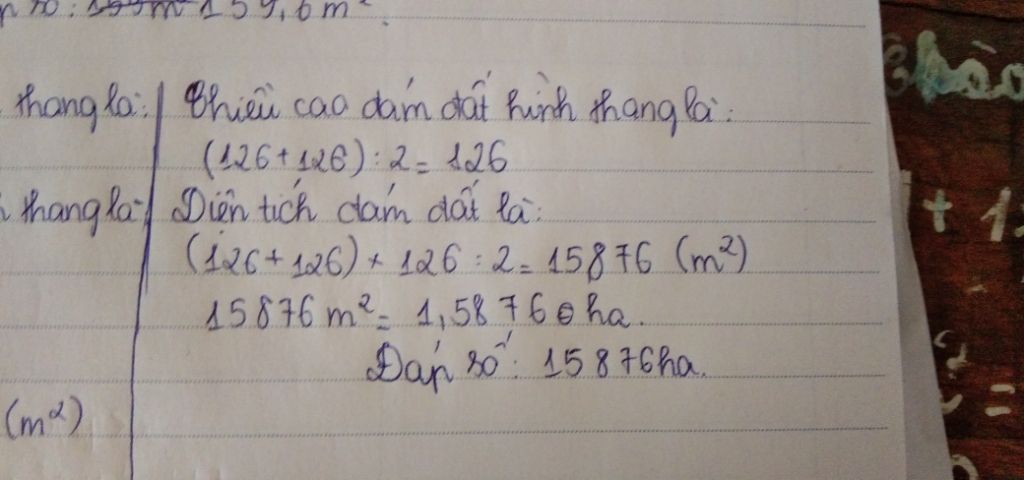 số: 159,6 m².
thang là: Chiều cao đám đất hình thang là:
(126 + 126) : 2 = 126
thang là: Diện tích đám đất là:
(126 + 126) × 126 : 2 = 15876 (m²)
15876 m² = 1,5876 ha.
Đáp số: 15876ha.
(m²)
+ 1
=